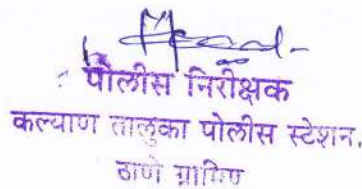 पोलीस निरीक्षक
कल्याण तालुका पोलीस स्टेशन,
ठाणे ग्रामिण